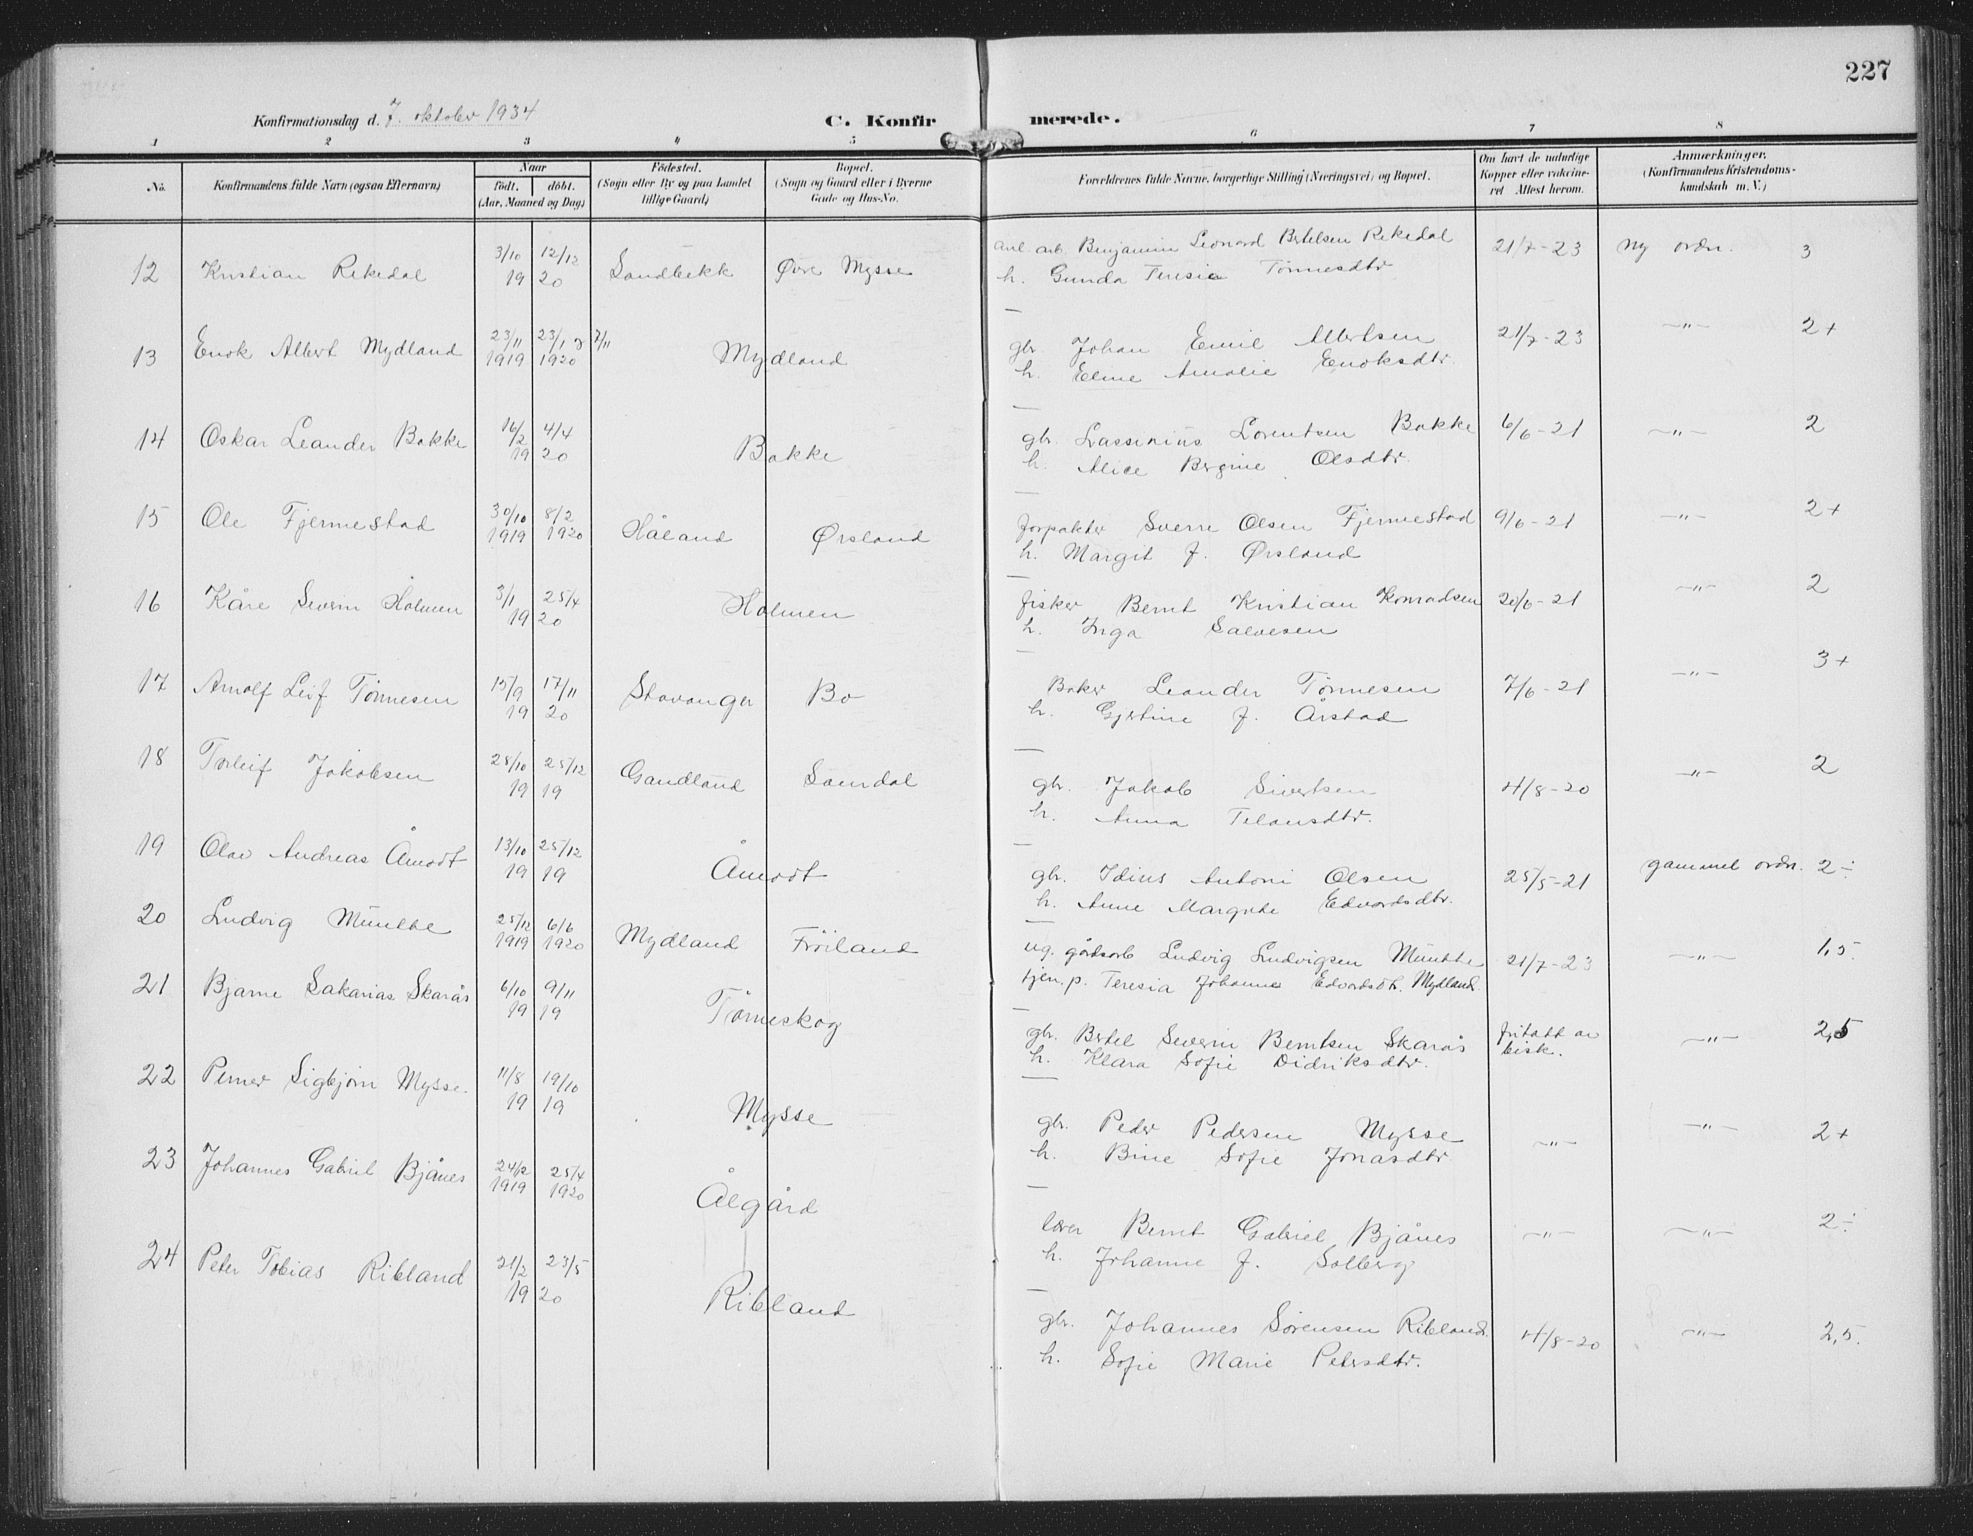 227
Konfirmationsdag d. 7. oktober 1934
C. Konfirmerede.
1 2 3 4 5 6 7 8
No.
Konfirmandens fulde Navn (ogsaa Efternavn)
Naar
födt. döbt.
(Aar, Maaned og Dag)
Födested.
(Sogn eller By og paa Landet
tillige Gaard)
Bopæl.
(Sogn og Gaard eller i Byerne
Gade og Hus-No.
Forældrenes fulde Navne, borgerlige Stilling (Næringsvei) og Bopæl.
Om havt de naturlige
Kopper eller vaccine-
ret Attest herom.
Anmærkninger.
(Konfirmandens Kristendoms-
kundskab m. V.)
12 Kristian Rekedal 3/10 19 12/12 20 Sandbekk Øvre Mysse
anl. arb. Benjamin Leonard Bertelsen Rekedal 21/7-23 ny ordn. 3
h. Gunda Teresie Tönnesdtr.
13 Enok Albert Mydland 23/11 1919 23/1 1920 7/11 Mydland
gbr. Johan Emil Albertsen 21/7-23 —"— 2+
h. Eline Amalie Enoksdtr.
14 Oskar Leander Bakke 16/2 19 4/4 20 Bakke
gbr. Lassinius Lorentsen Bakke 6/6-21 —"— 2
h. Alice Bergine Olsdtr.
15 Ole Fjermestad 30/10 1919 8/2 1920 Håland Ørsland
forpakter Sverre Olsen Fjermestad 9/6-21 —"— 2+
h. Margit f. Ørsland
16 Kåre Severin Holmen 3/1 19 25/4 20 Holmen
fisker Bernt Kristian Konradsen 20/6-21 —"— 2
h. Inga Salvesen
17 Arnolf Leif Tönnesen 15/9 19 17/11 20 Stavanger Bo
Baker Leander Tönnesen 7/6-21 —"— 3+
h. Gjertine f. Årstad
18 Torleif Jakobsen 28/10 19 25/12 19 Gandland Samdal
gbr. Jakob Sivertsen 4/8-20 —"— 2
h. Anna Telausdtr.
19 Olav Andreas Åmodt 13/10 19 25/12 19 Åmodt
gbr. Idius Antoni Olsen 25/5-21 gammel ordn. 2÷
h. Anne Margrete Edvardsdtr.
20 Ludvig Münthe 25/12 1919 6/6 1920 Mydland Fröiland
ug. gårdsarb Ludvig Ludvigsen Münthe 21/7-23 —"— 1,5.
tjen. p. Teresia Johanne Edvardsdtr. Mydland.
21 Bjarne Sakarias Skarås 6/10 19 9/11 19 Tönneskog
gbr. Bertel Severin Berntsen Skarås fritatt av —"— 2,5
h. Klara Sofie Didriksdtr. bisk.
22 Perner Sigbjörn Mysse. 11/8 19 19/10 19 Mysse
gbr. Peder Pedersen Mysse —"— —"— 2+
h. Bine Sofie Jonasdtr
23 Johannes Gabriel Bjånes 24/12 1919 25/4 1920 Ålgård
lærer Bernt Gabriel Bjånes —"— —"— 2÷
h. Johanne f. Solberg
24 Peter Tobias Ribland 21/2 19 23/5 20 Ribland
gbr. Johannes Sörensen Ribland. 4/8-20 —"— 2,5.
h. Sofie Marie Petersdtr.